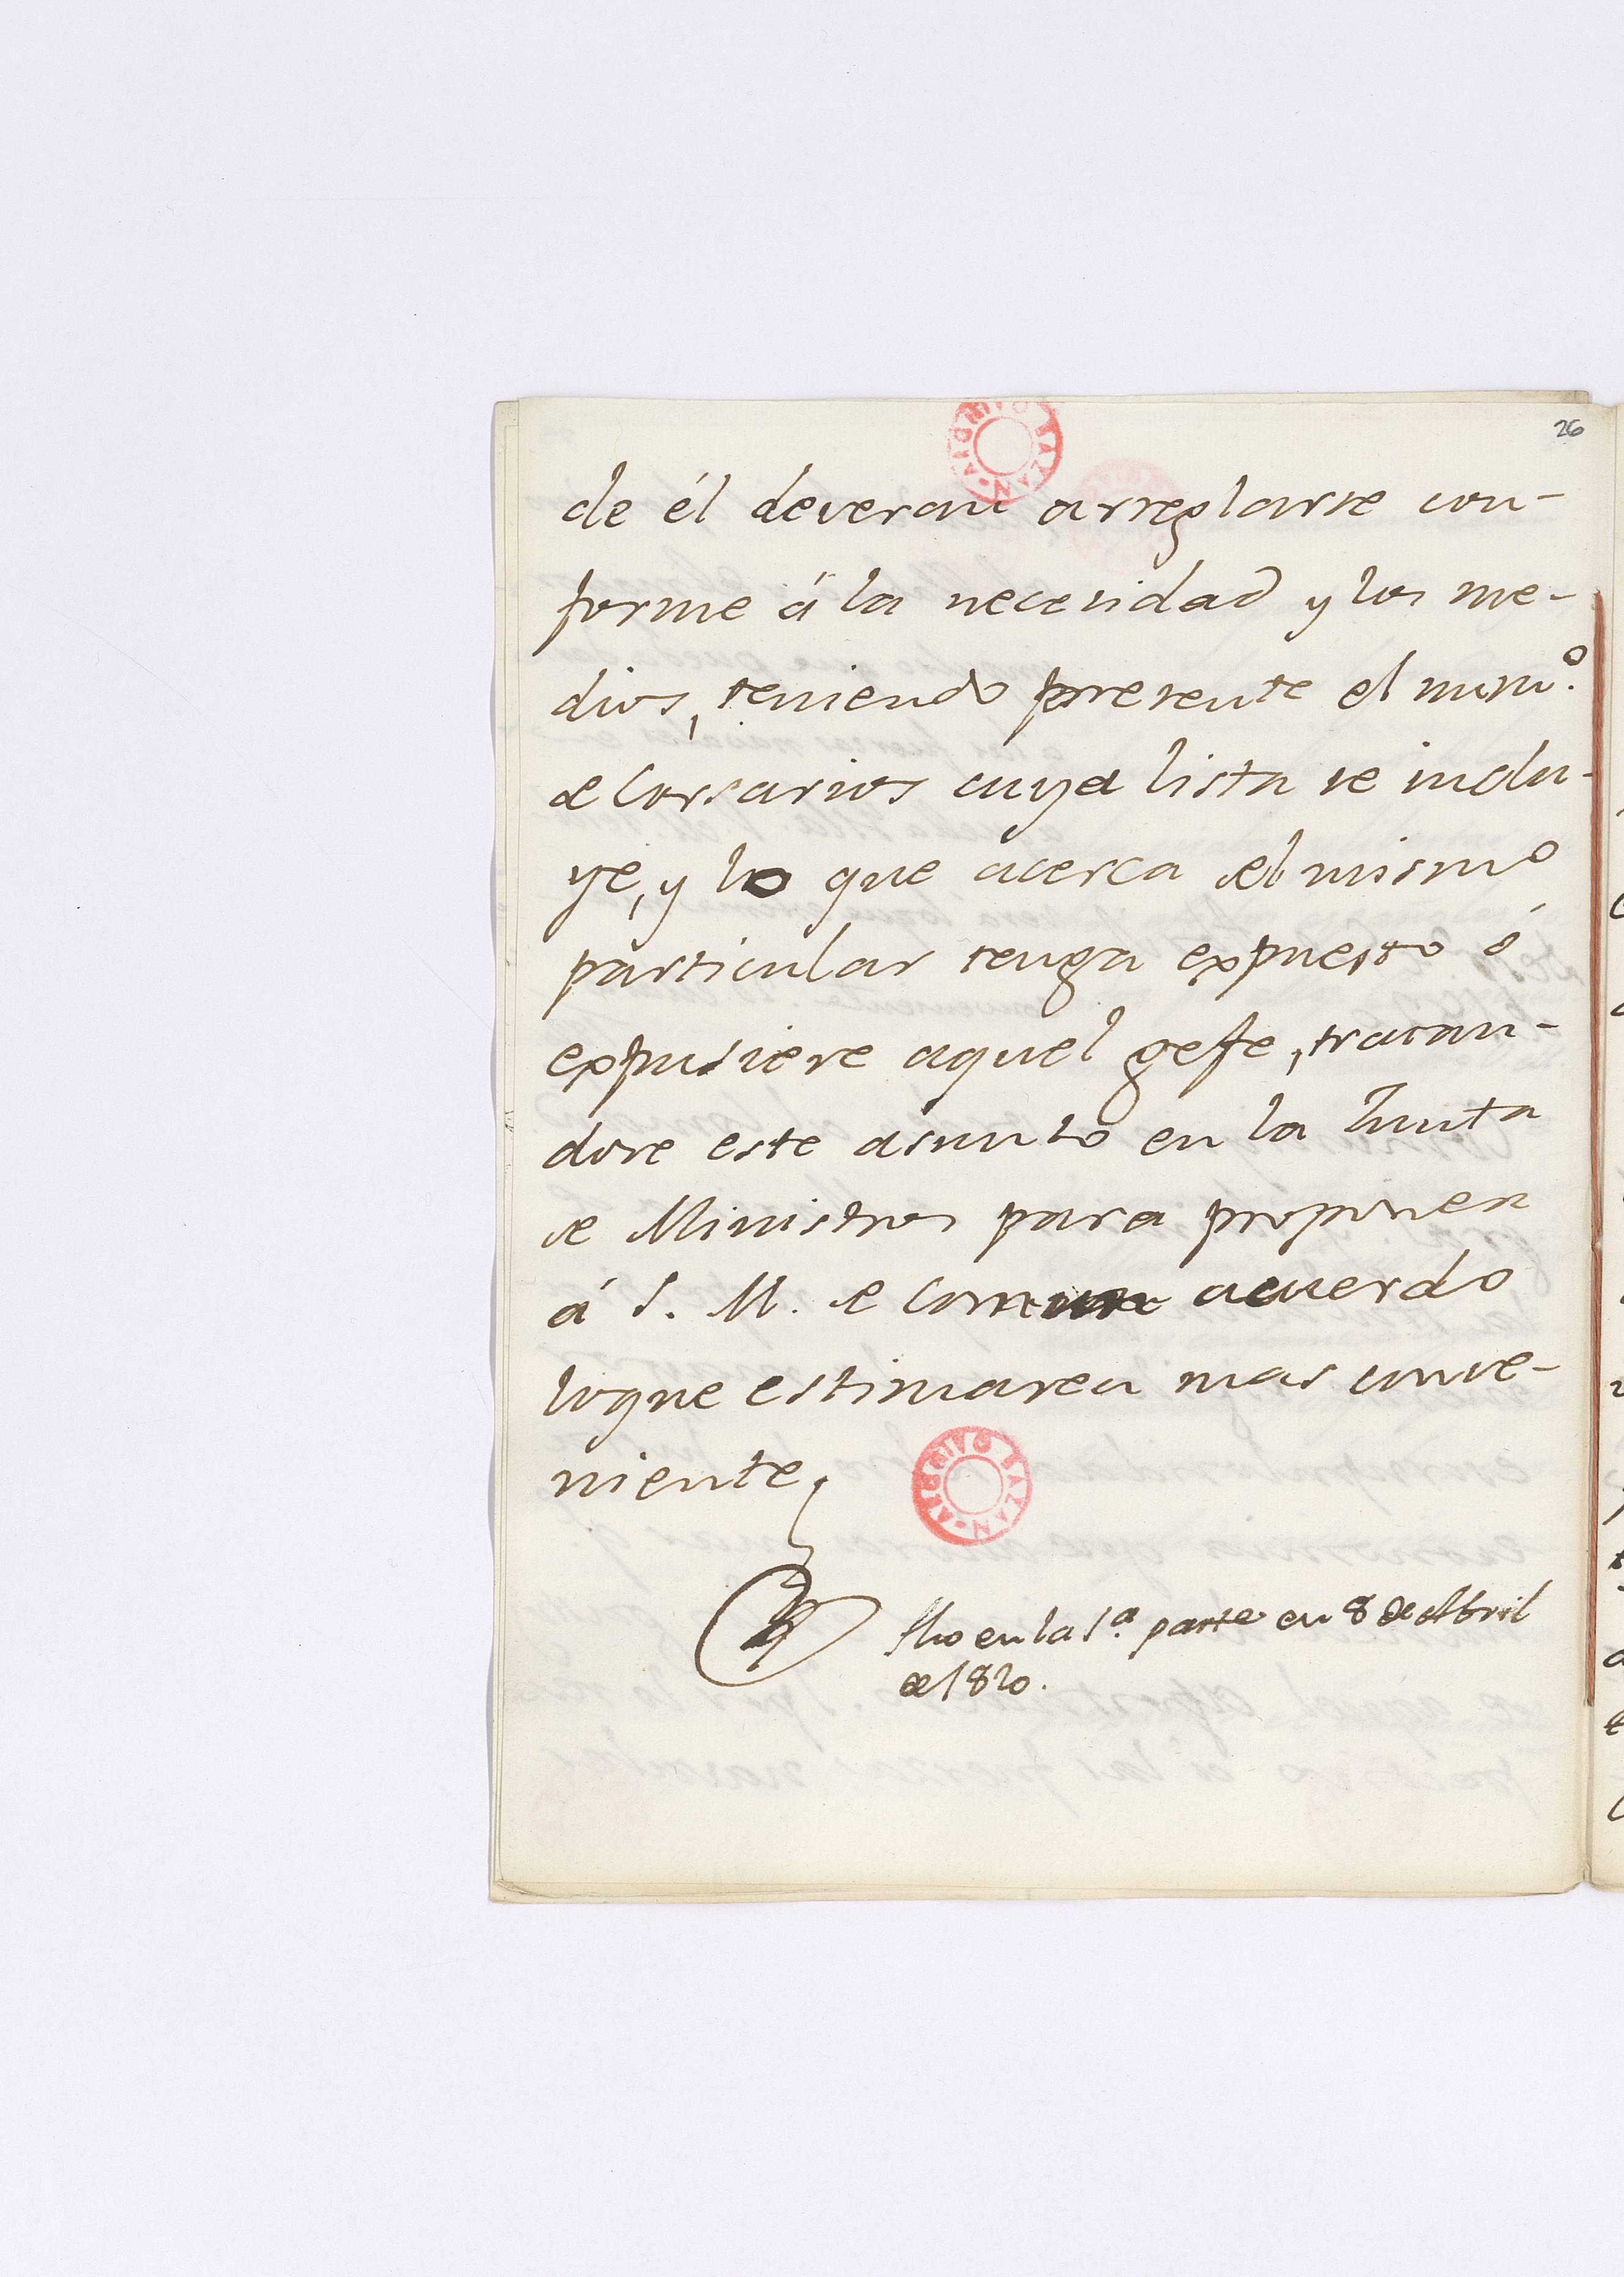 26
de él deveran arreglarse con-
forme á la necesidad y los me-
dios, teniendo presente el num.º
de Corsarios cuya lista se inclu-
ye, y lo que acerca del mismo
particular tenga expuesto ó
expusiere aquel gefe, tratan-
dose este asunto en la Junta
de Ministros para proponer
á S. M. de comun acuerdo
loque estimaren mas conve-
niente.
fho en la 1.ª parte en 8 de Abril
de 1820.
ARCHIVO BAZAN
ARCHIVO BAZAN